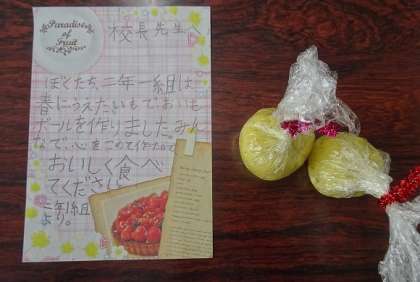 Paradise
of
Fruit
校長先生へ
ぼくたち、二年一組は
春にうえたいもで、おいも
ボールを作りました。みん
なで、心をこめて作たので
おいしく食べ
てください。
二年一組
より。